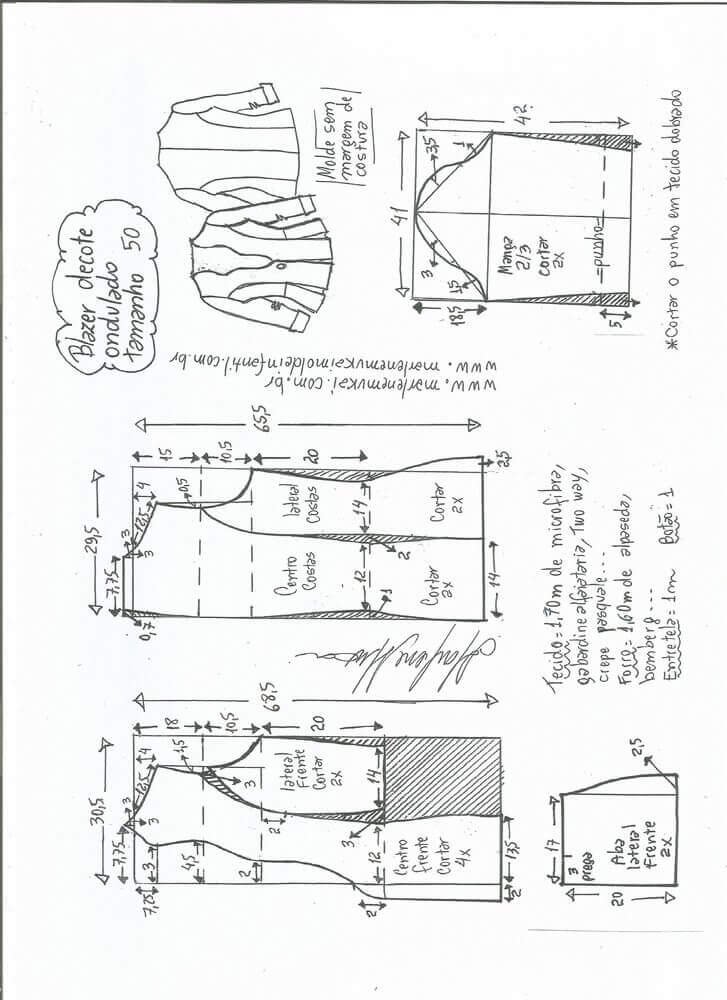 Blazer decote
ondulado
tamanho 50
Molde sem
margem de
costura
www.marlenemukai.com.br
www.marlenemukaimoldeinfantil.com.br
42
41
3,5
1
3
1,5
18,5
5
Manga
2/3
cortar
2x
=punho=
*Cortar o punho em tecido dobrado
65,5
15
10,5
20
29,5
7,75
4
12,5
3
3
0,5
0,7
lateral
Costas
Cortar
2x
14
2,5
2
Centro
Costas
Cortar
2x
12
1
14
68,5
18
10,5
20
30,5
7,75
4
12,5
3
3
1,5
3
lateral
Frente
Cortar
2x
14
2
3
7,25
3
4,5
2
2
12
Centro
Frente
Cortar
4x
13,5
2
Tecido=1,70m de microfibra,
gabardine alfaiataria, Two way,
crepe pasquale...
Forro=1,60m de alpaseda,
bemberg...
Entretela=1m Botão=1
17
3
prega
Aba
lateral
Frente
2x
20
2,5